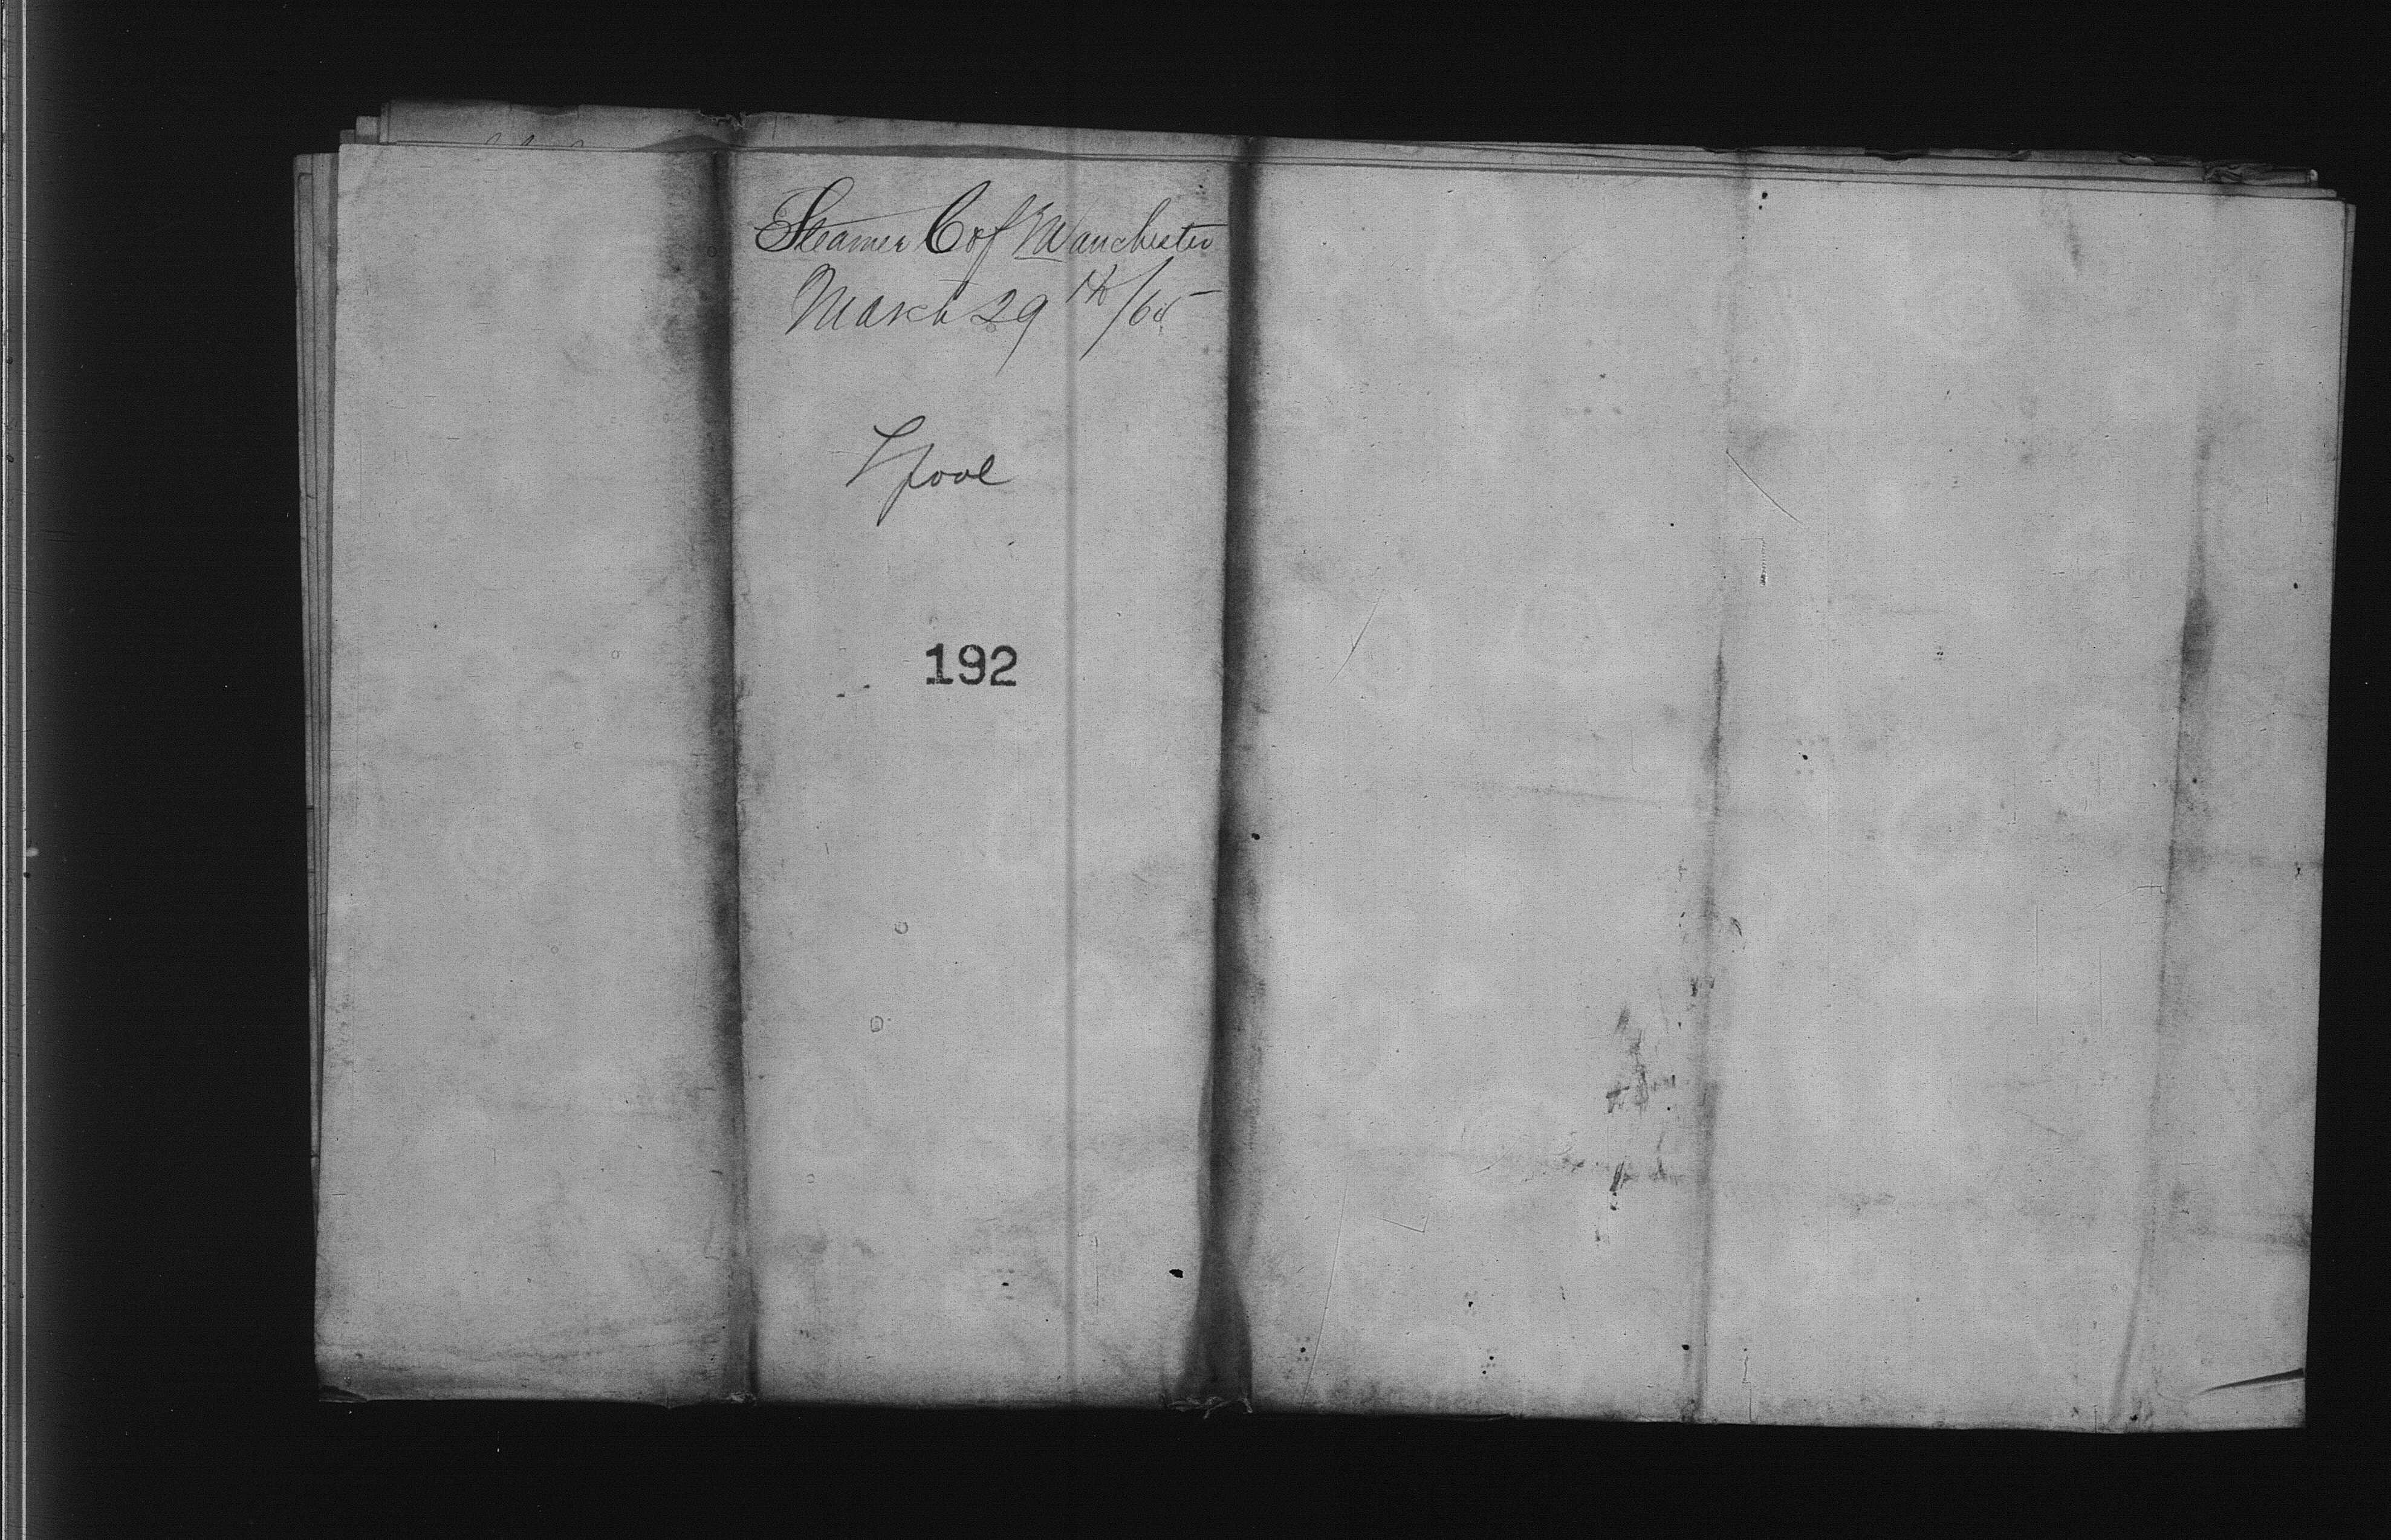 Steamer C of Manchester
March 29th/65
Lpool
192